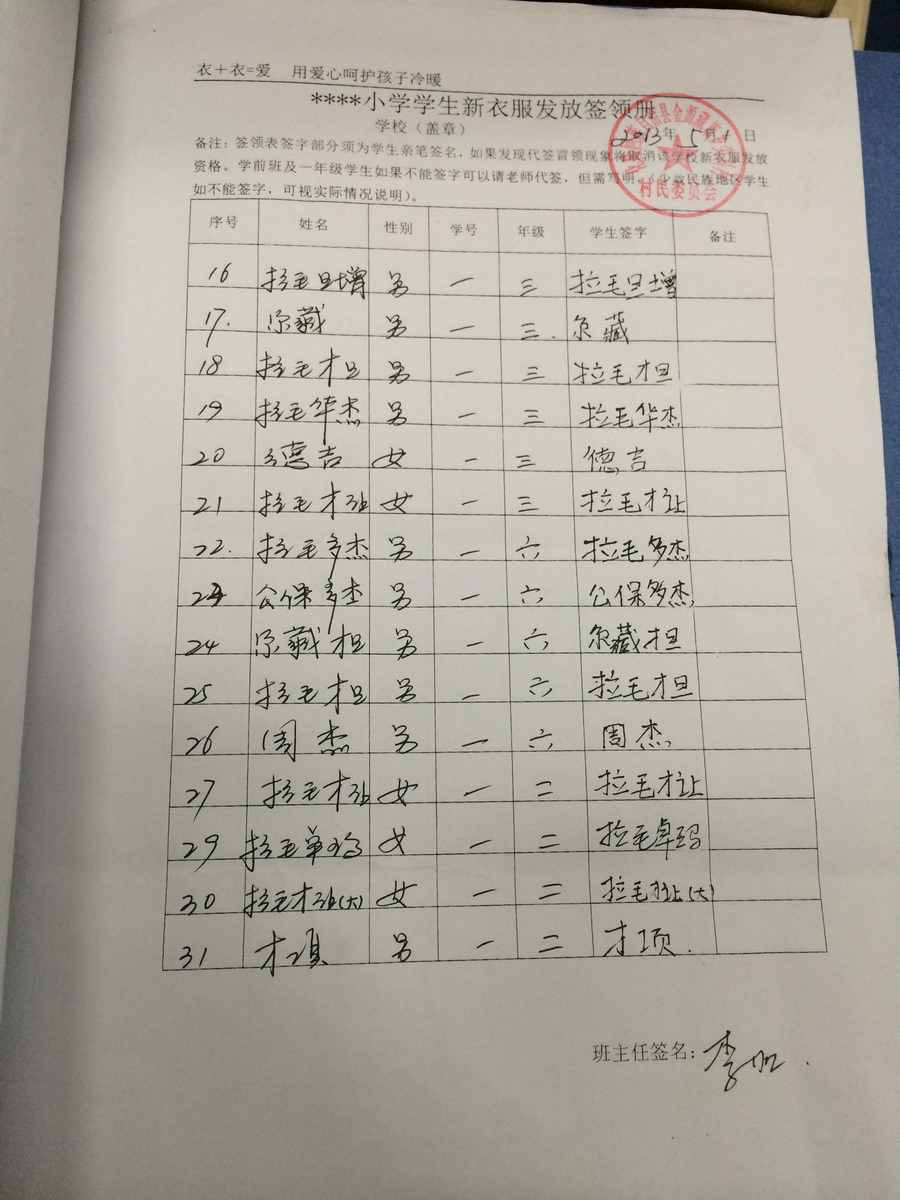 衣+衣=爱 用爱心呵护孩子冷暖
****小学学生新衣服发放签领册
学校(盖章) 2013年5月1日
备注:签领表签字部分须为学生亲笔签名,如果发现代签冒领现象将取消该学校新衣服发放
资格。学前班及一年级学生如果不能签字可以请老师代签,但需写明。(少数民族地区学生
如不能签字,可视实际情况说明)。
村民委员会
序号 姓名 性别 学号 年级 学生签字 备注
16 拉毛旦增 男 一 三 拉毛旦增
17. 尕藏 男 一 三. 尕藏
18 拉毛才旦 男 一 三 拉毛才旦
19 拉毛华杰 男 一 三 拉毛华杰
20 德吉 女 一 三 德吉
21 拉毛才让 女 一 三 拉毛才让
22. 拉毛多杰 男 一 六 拉毛多杰
23 公保多杰 男 一 六 公保多杰
24 尕藏才旦 男 一 六 尕藏才旦
25 拉毛才旦 男 一 六 拉毛才旦
26 周杰 男 一 六 周杰
27 拉毛才让 女 一 二 拉毛才让
29 拉毛卓玛 女 一 二 拉毛卓玛
30 拉毛才让(大) 女 一 二 拉毛才让(大)
31 才项 男 一 二 才项.
班主任签名: 李